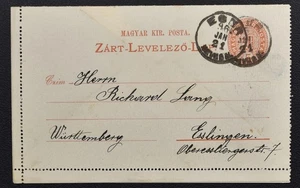 MAGYAR KIR. POSTA.
ZÁRT-LEVELEZŐ-L
Czim: Herrn
Richard Lang
Württemberg
Esslingen.
Obereslingerstr. 7